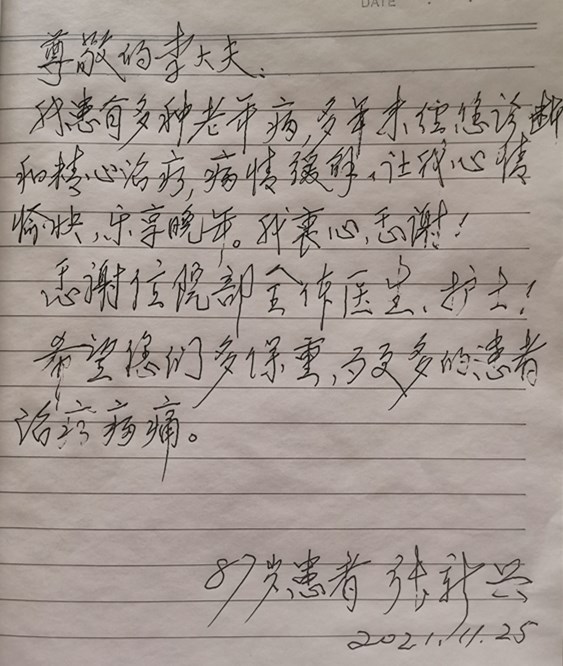 DATE
尊敬的李大夫:
我患有多种老年病,多年来经您诊断
和精心治疗,病情缓解,让我心情
愉快,乐享晚年。我衷心感谢!
感谢住院部全体医生、护士!
希望您们多保重,为更多的患者
治疗病痛。
87岁患者 张新兴
2021.11.25